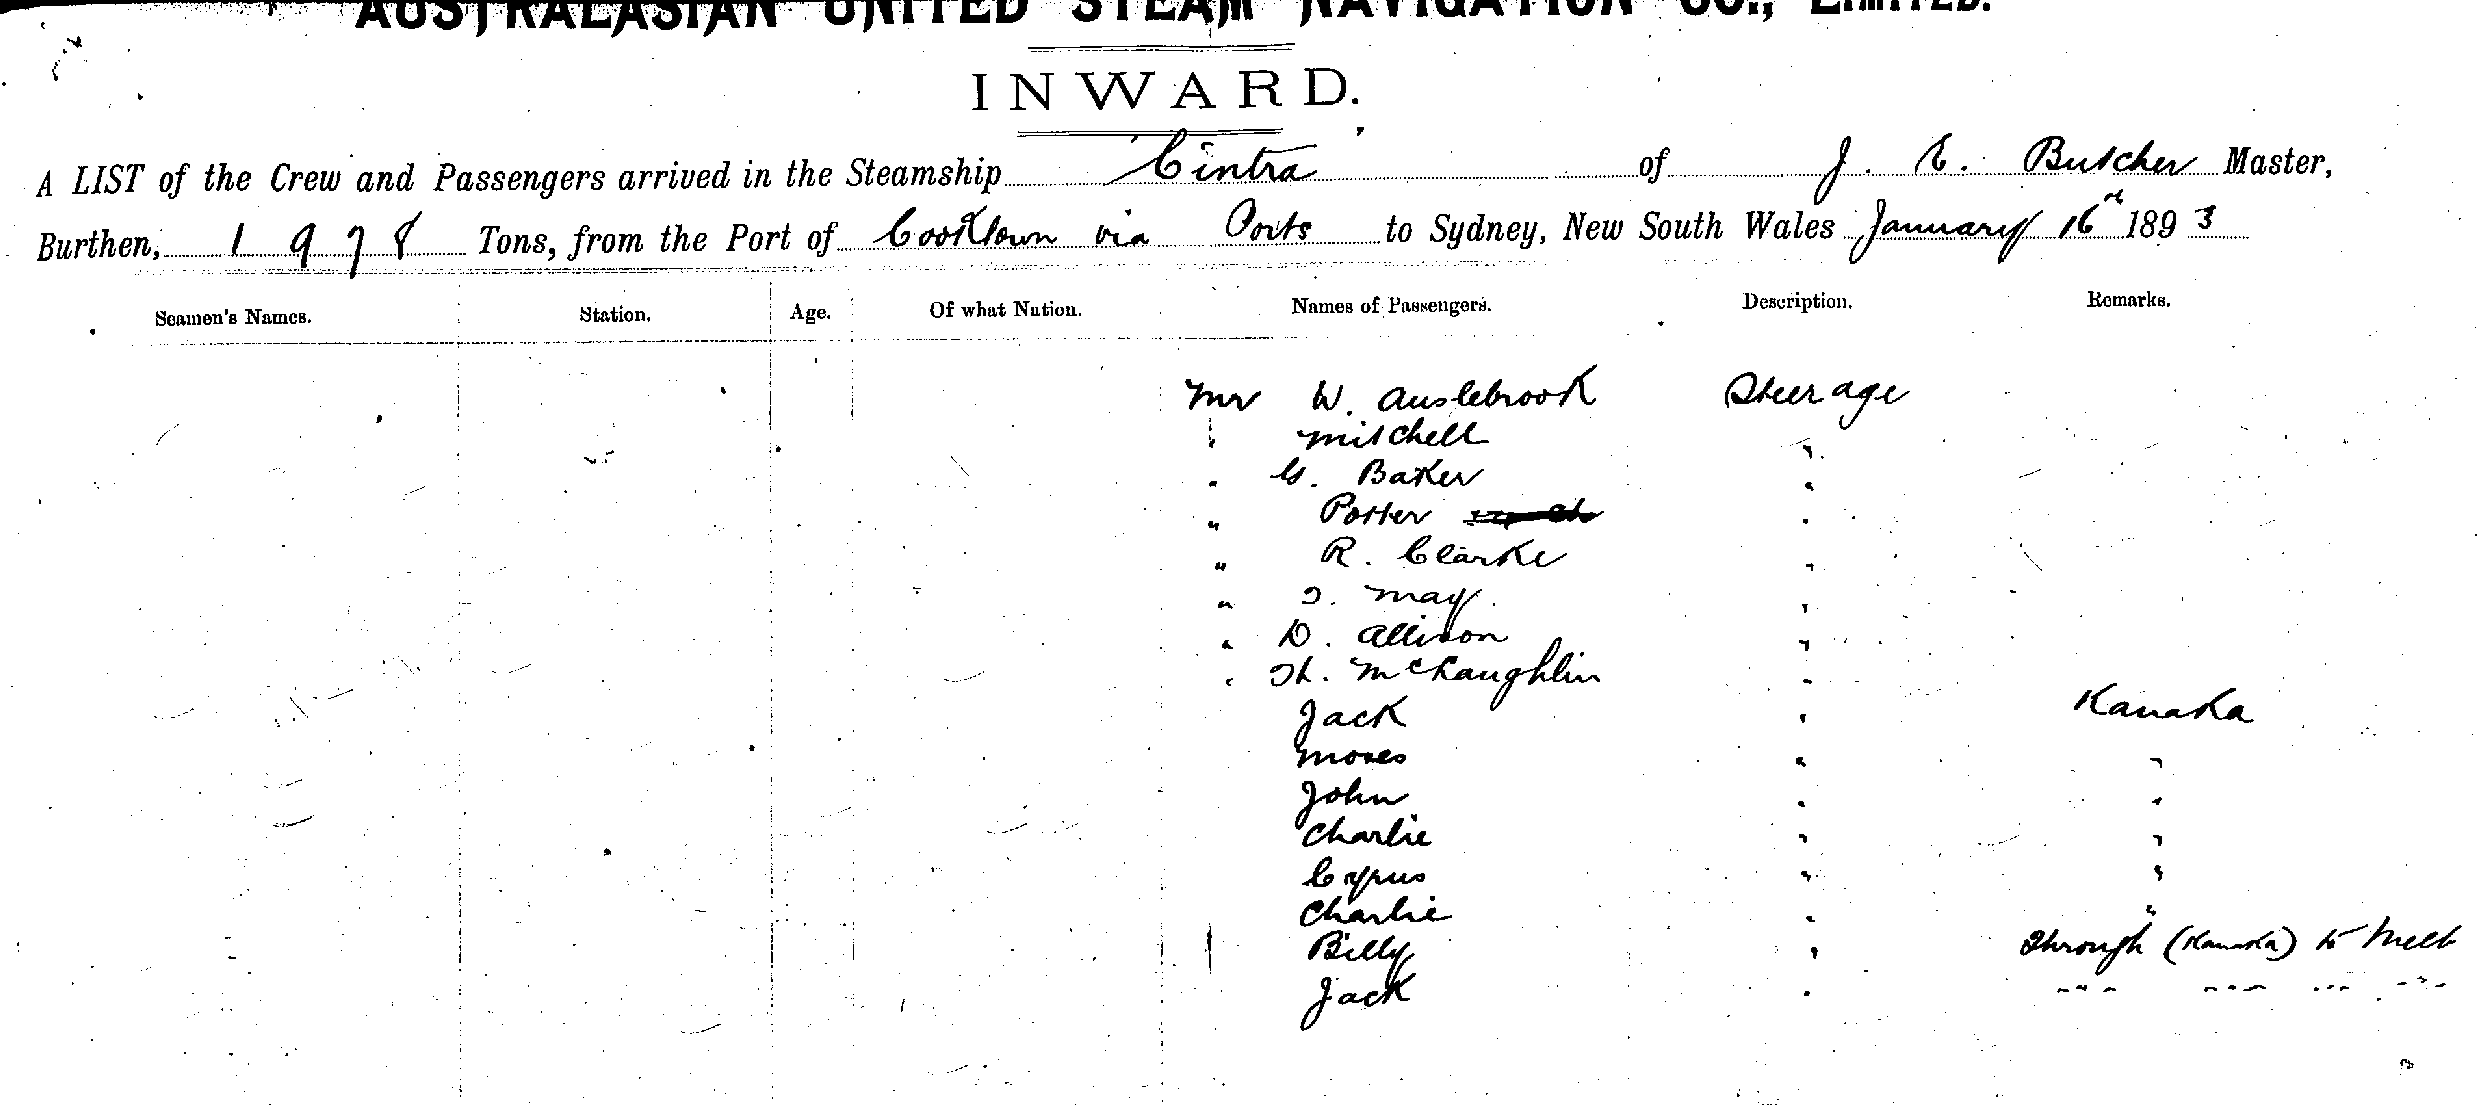 AUSTRALASIAN UNITED STEAM NAVIGATION CO., LIMITED.
INWARD.
A LIST of the Crew and Passengers arrived in the Steamship Cintra of J. E. Butcher Master,
Burthen, 1978 Tons, from the Port of Cooktown via Ports to Sydney, New South Wales January 16th 1893
Seamen's Names. Station. Age. Of what Nation. Names of Passengers. Description. Remarks.
Mr W. Auslebrook Steerage
" Mitchell "
" G. Baker "
" Porter "
" R. Clarke "
" J. May "
" D. Allison "
" Th. McLaughlin "
Jack " Kanaka
Moses " "
John " "
Charlie " "
Cyrus " "
Charlie " "
Billy " Through (Kanaka) to Melb
Jack " " " " "